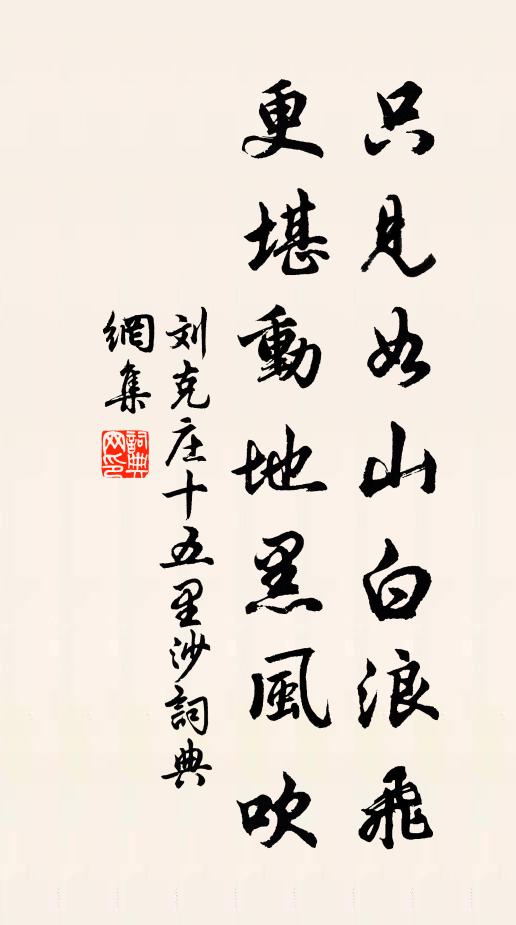 只見如山白浪飛
更堪動地黑風吹
刘克庄十五里沙詞典
網集
詞典
网印